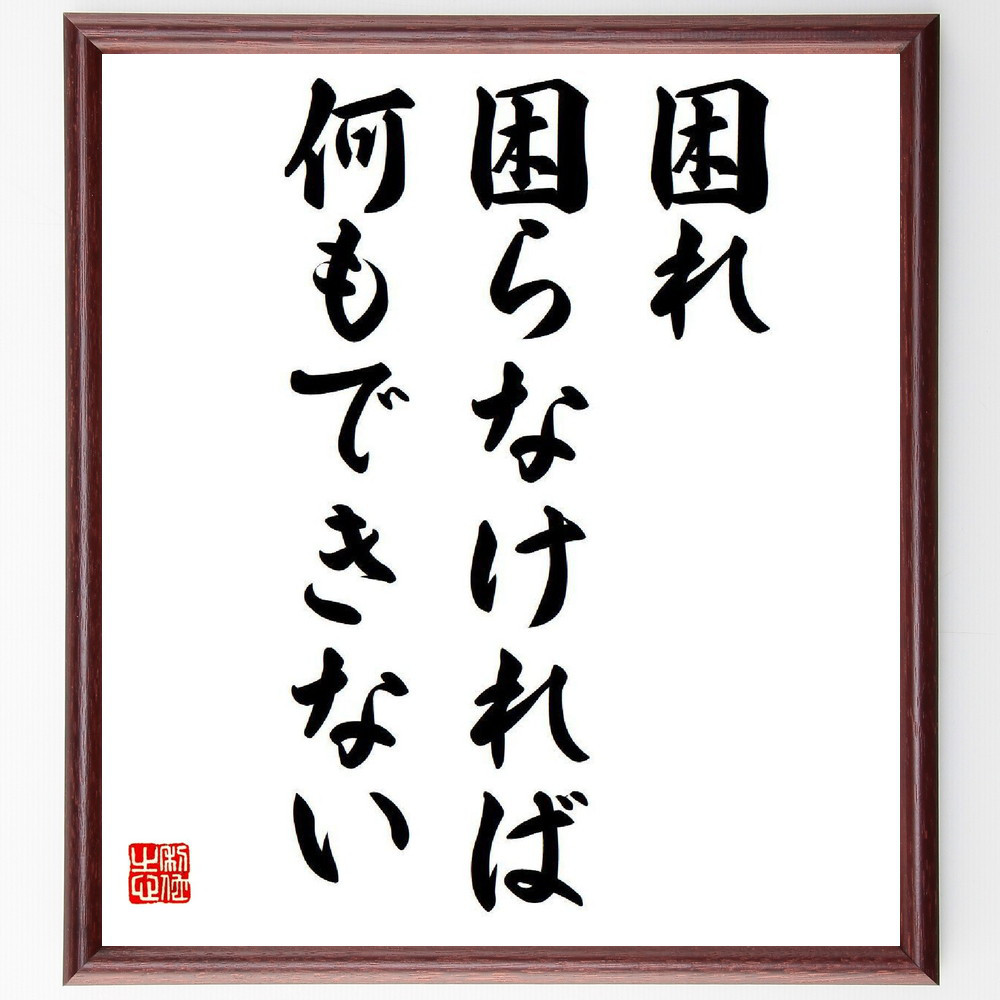 困れ
困らなければ
何もできない